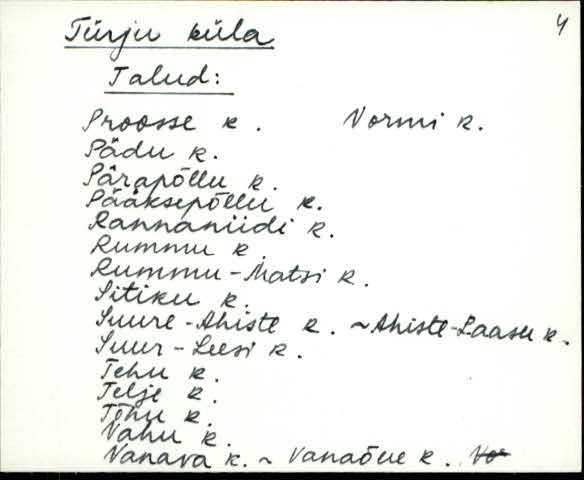 4
Türju küla
Talud:
Proosse k. Vormi k.
Pädu k.
Pärapõllu k.
Pääksepõllu k.
Rannaniidi k.
Rummu k.
Rummu-Matsi k.
Sitiku k.
Suure-Ahiste k. ~ Ahiste-Laasu k.
Suur-Leesi k.
Tehu k.
Telje k.
Tõhu k.
Vahu k.
Vanava k. ~ Vanaõue k.